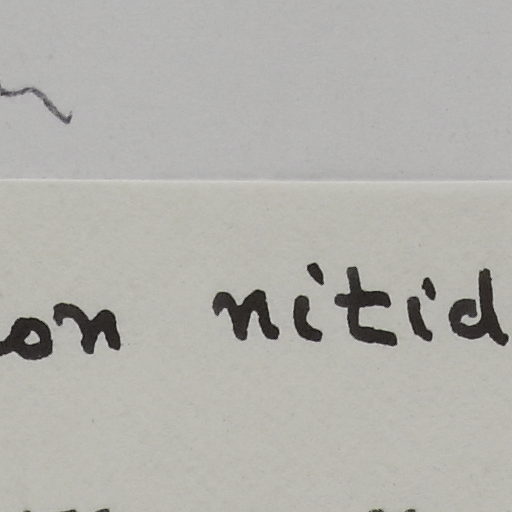 on nitid